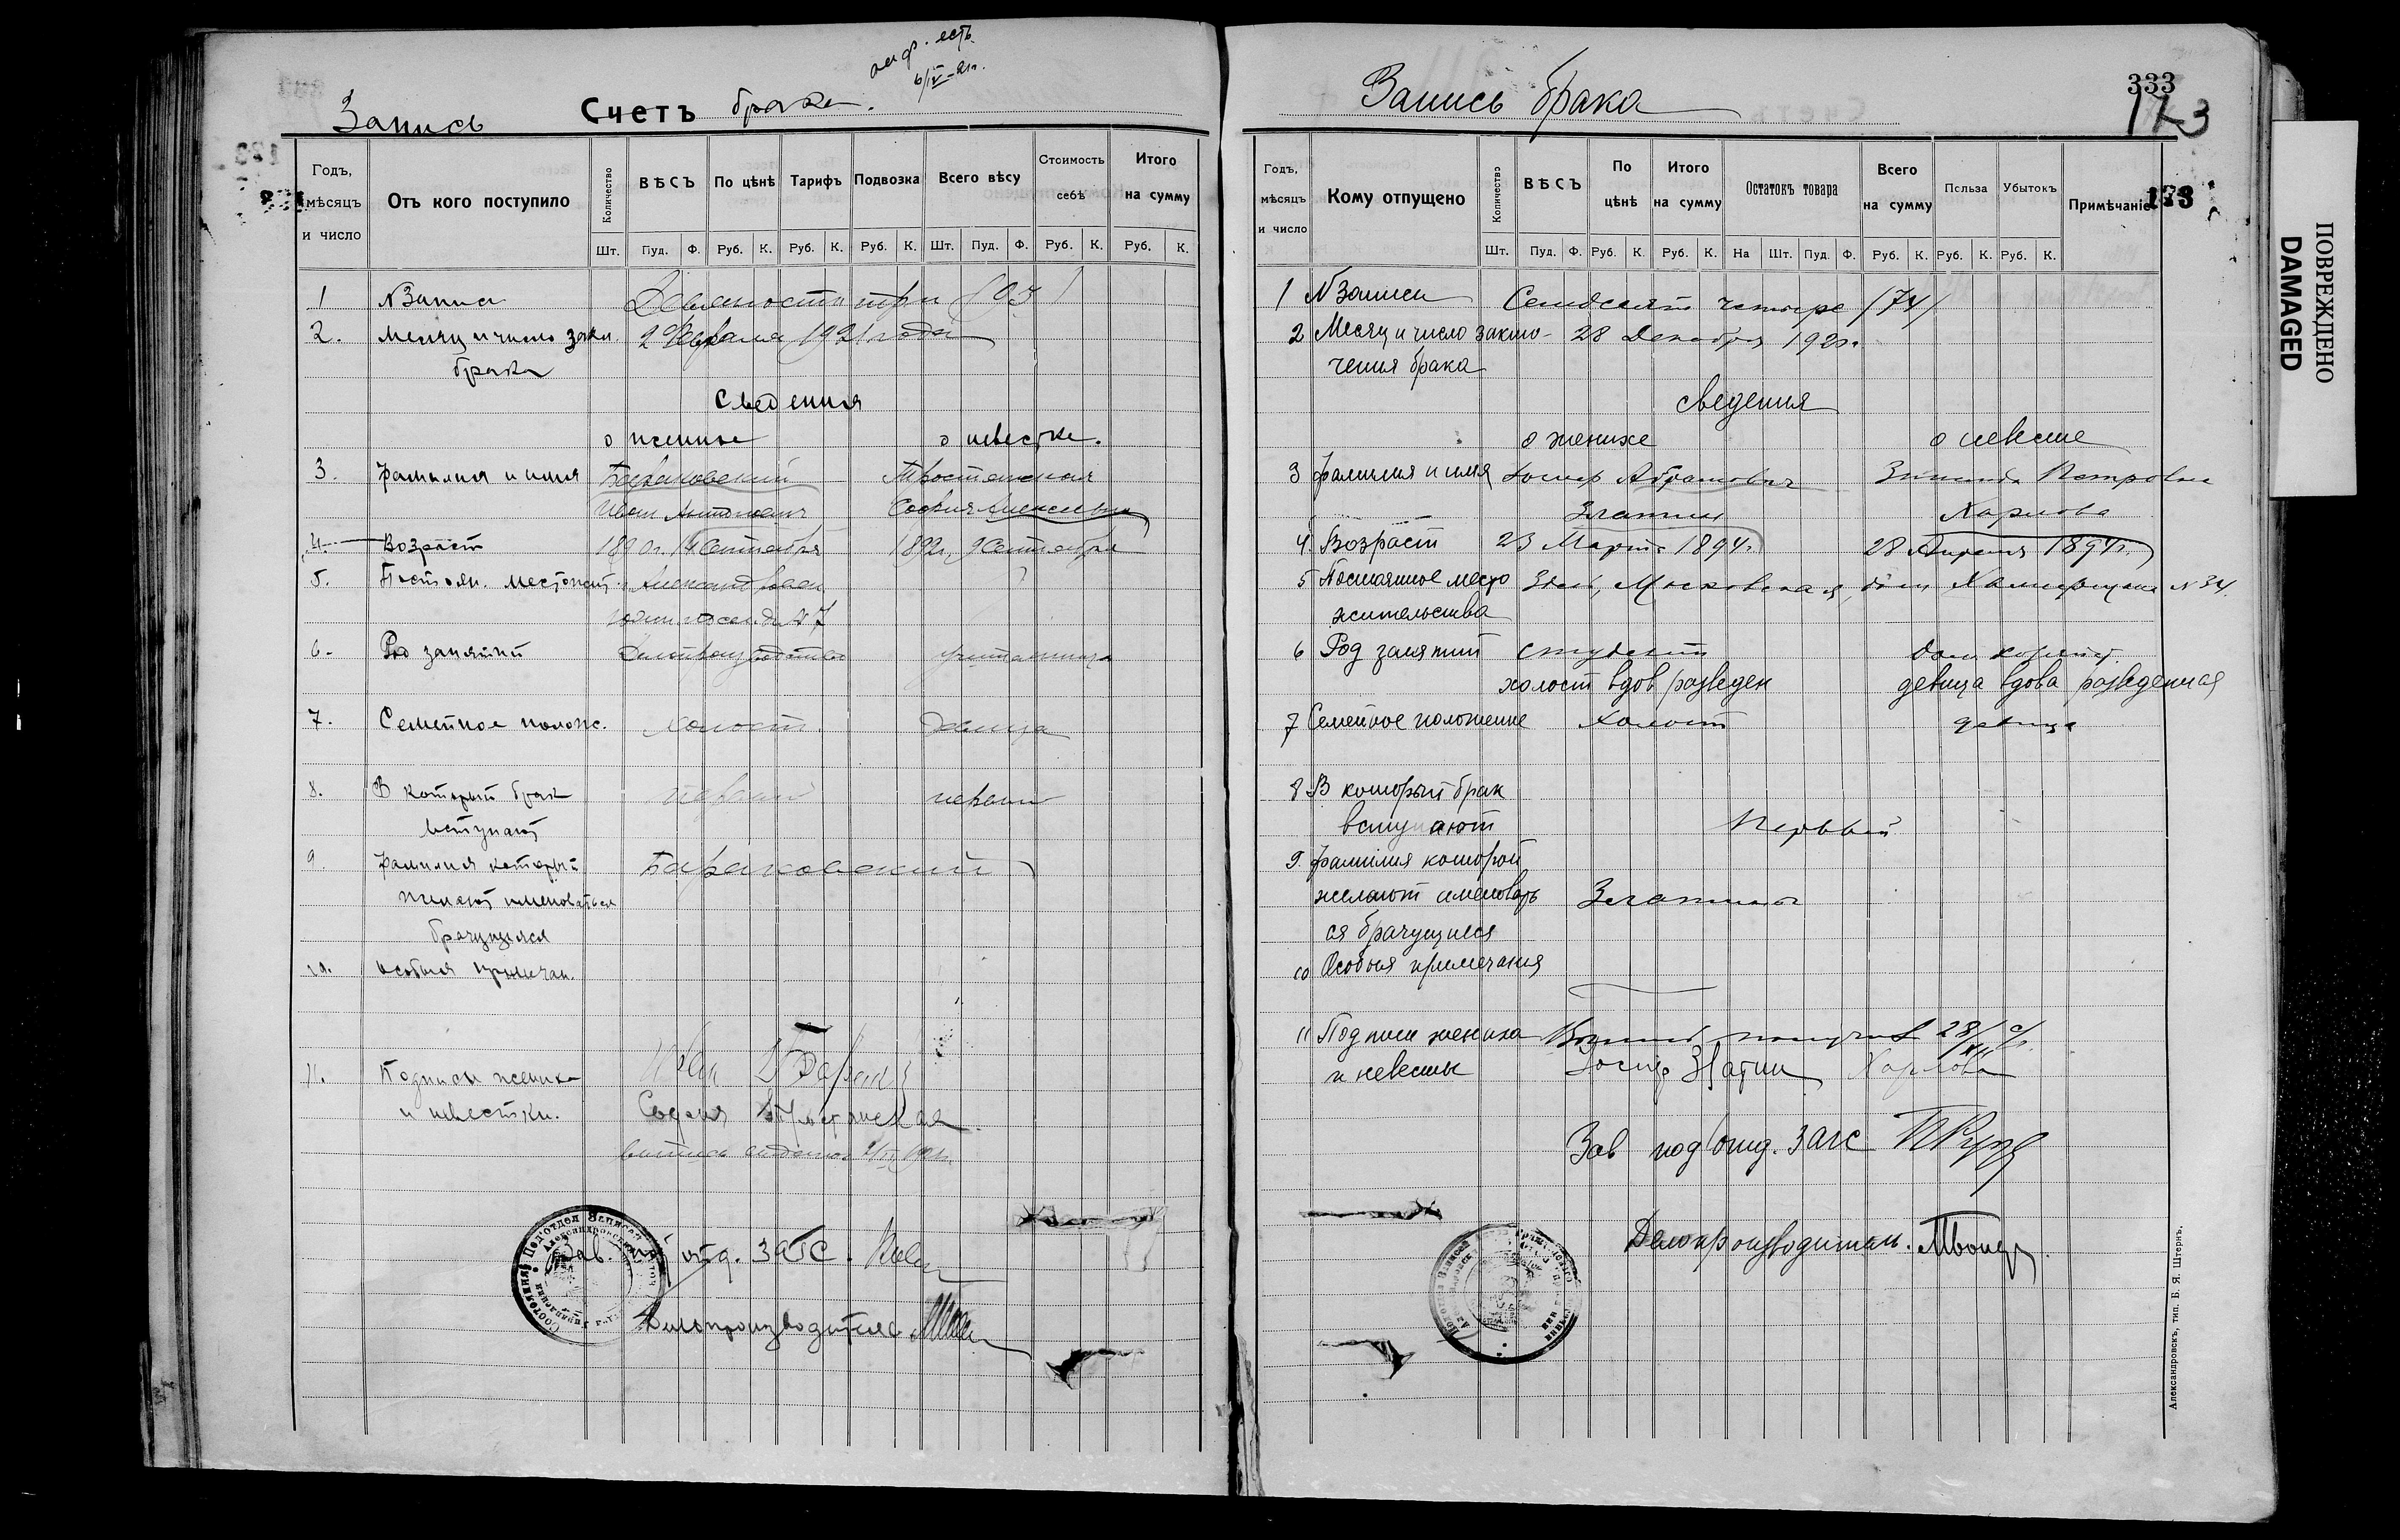 Запись Счетъ брака.
Годъ, мѣсяцъ и число
Отъ кого поступило
Количество
ВѢСЪ
По цѣнѣ
Тарифъ
Подвозка
Всего вѣсу
Стоимость себѣ
Итого на сумму
Шт. Пуд. Ф. Руб. К. Руб. К. Руб. К. Шт. Пуд. Ф. Руб. К. Руб. К.
1 N Записи Девяносто три (93)
2. Месяц и число закл. 2 Февраля 1921 года
брака
Сведения
о женихе о невестке.
3. Фамилия и имя Бараковский
Иван Антонович София Алексеевна
4. Возраст 1890г. 14 Сентября 1892г. 9 Сентября
5. Постоян. местожит. Александровск
N 7
6. Род занятий Делопроизводство
7. Семейное полож. холост. девица
8. В который брак первый первый
вступают
9. Фамилия который Бараковский
желают именоваться
брачущиеся
10. Особыя примечан.
11. Подписи жениха Иван
и невестки. София
Зав. отд. ЗАГС.
Делопроизводитель
Запись брака
333
173
Годъ, мѣсяцъ и число
Кому отпущено
Количество
ВѢСЪ
По цѣнѣ
Итого на сумму
Остатокъ товара
Всего на сумму
Польза
Убытокъ
Примѣчаніе
Шт. Пуд. Ф. Руб. К. Руб. К. На Шт. Пуд. Ф. Руб. К. Руб. К. Руб. К.
1 N Записи Семдесят четыре /74/
2 Месяц и число заклю- 28 Декабря 1920г.
чения брака
сведения
о женихе о невесте
3 Фамилия и имя Иосиф Абрамович Зинаида Петровна
Златин Харлова
4. Возраст 23 Марта 1894г. 28 Апреля 1894г.
5 Постоянное место Здесь, Московская, дом N 34.
жительства
6 Род занятий студент дом. хозяйст.
холост вдов разведен девица вдова разведенная
7 Семейное положение Холост девица
8 В который брак
вступают Первый
9. Фамилия которой
желают именовать Златины
ся брачущиеся
10 Особыя примечания
11 Подписи жениха 28/XII
и невесты Иосиф Златин Харлова
Зав подотд. ЗАГС
Делопроизводитель.
Александровскъ, тип. Б. Я. Штернъ.
ПОВРЕЖДЕНО
DAMAGED